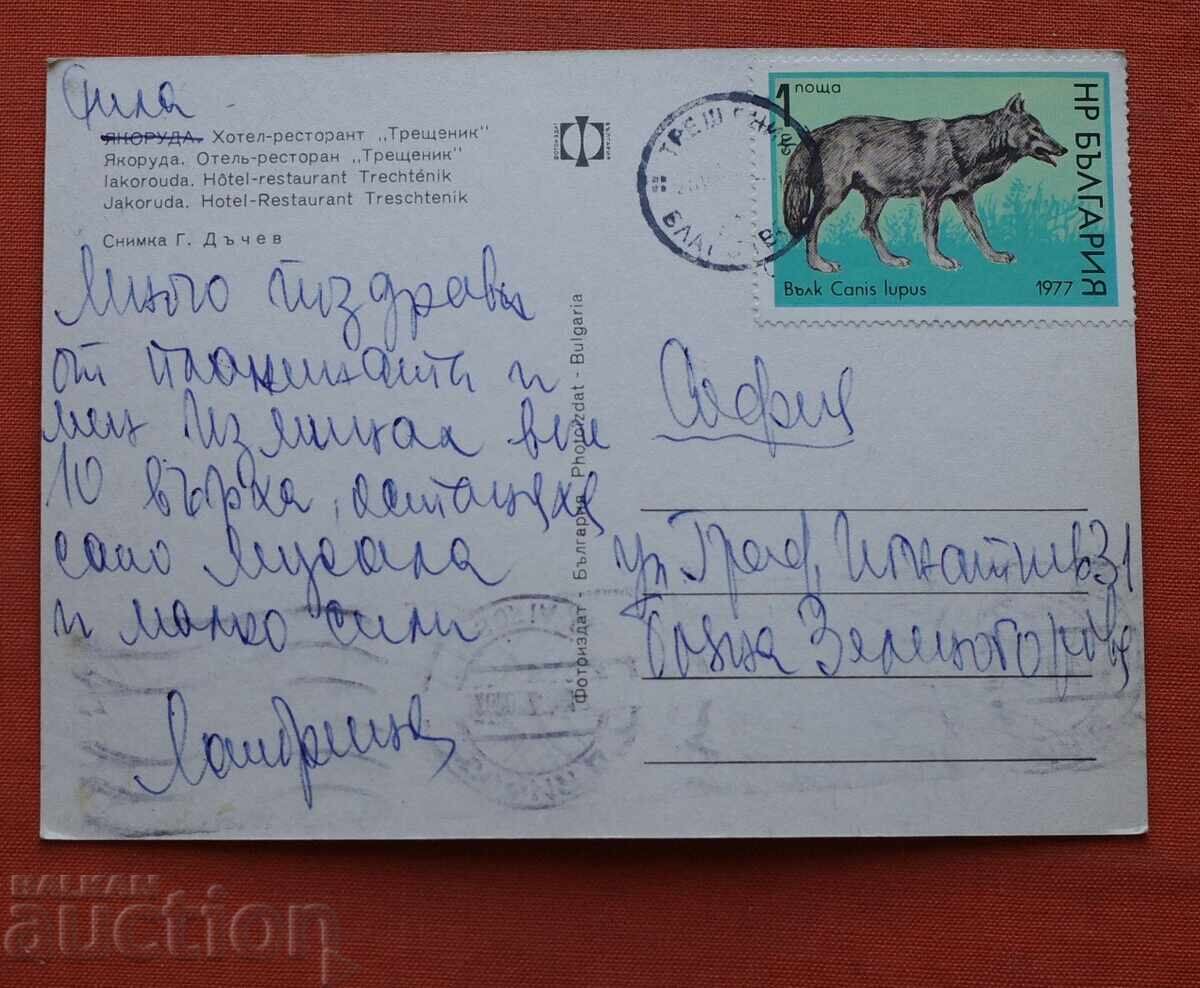 Рила
ЯКОРУДА. Хотел-ресторант „Трещеник"
Якоруда. Отель-ресторан „Трещеник"
Iakorouda. Hôtel-restaurant Trechténik
Jakoruda. Hotel-Restaurant Treschtenik
Снимка Г. Дъчев
Много поздрави
от планината и
мен Изминал вече
10 върха, останаха
само Мусала
и малко сили
Фотоиздат - България Photoizdat - Bulgaria
1 поща
НР БЪЛГАРИЯ
Вълк Canis lupus 1977
ТРЕЩЕНИК
София
ул Граф Игнатиев 31
Зеленогорова
BALKAN
auction